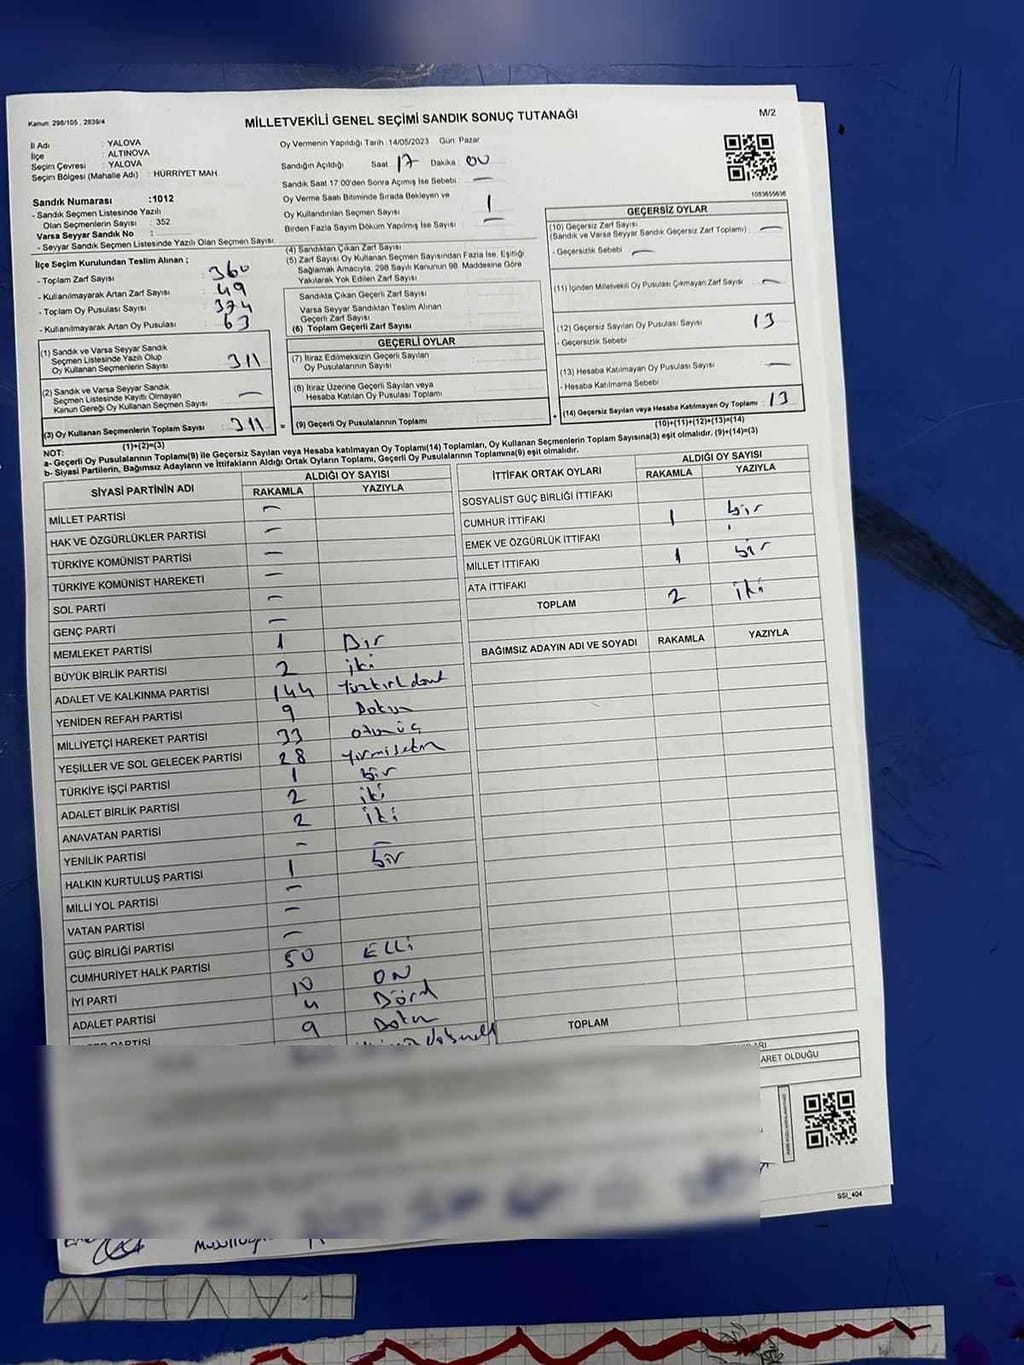 Kanun: 298/105 , 2839/4
MİLLETVEKİLİ GENEL SEÇİMİ SANDIK SONUÇ TUTANAĞI
M/2
İl Adı : YALOVA
İlçe : ALTINOVA
Seçim Çevresi : YALOVA
Seçim Bölgesi (Mahalle Adı) : HÜRRİYET MAH.
Oy Vermenin Yapıldığı Tarih :14/05/2023 Gün: Pazar
Sandığın Açıldığı Saat 17 Dakika 00
Sandık Saat 17:00'den Sonra Açımış İse Sebebi : —
Oy Verme Saati Bitiminde Sırada Bekleyen ve
Oy Kullandırılan Seçmen Sayısı 1
Birden Fazla Sayım Döküm Yapılmış İse Sayısı : —
1083655636
Sandık Numarası :1012
- Sandık Seçmen Listesinde Yazılı
Olan Seçmenlerin Sayısı : 352
Varsa Seyyar Sandık No :
- Seyyar Sandık Seçmen Listesinde Yazılı Olan Seçmen Sayısı:
İlçe Seçim Kurulundan Teslim Alınan ;
- Toplam Zarf Sayısı : 360
- Kullanılmayarak Artan Zarf Sayısı : 49
- Toplam Oy Pusulası Sayısı : 374
- Kullanılmayarak Artan Oy Pusulası : 63
(1) Sandık ve Varsa Seyyar Sandık
Seçmen Listesinde Yazılı Olup
Oy Kullanan Seçmenlerin Sayısı : 311
(2) Sandık ve Varsa Seyyar Sandık
Seçmen Listesinde Kayıtlı Olmayan
Kanun Gereği Oy Kullanan Seçmen Sayısı : —
(3) Oy Kullanan Seçmenlerin Toplam Sayısı : 311
(1)+(2)=(3)
(4) Sandıktan Çıkan Zarf Sayısı
(5) Zarf Sayısı Oy Kullanan Seçmen Sayısından Fazla İse, Eşitliği
Sağlamak Amacıyla, 298 Sayılı Kanunun 98. Maddesine Göre
Yakılarak Yok Edilen Zarf Sayısı :
Sandıkta Çıkan Geçerli Zarf Sayısı
Varsa Seyyar Sandıktan Teslim Alınan
Geçerli Zarf Sayısı
(6) Toplam Geçerli Zarf Sayısı
GEÇERLİ OYLAR
(7) İtiraz Edilmeksizin Geçerli Sayılan
Oy Pusulalarının Sayısı:
(8) İtiraz Üzerine Geçerli Sayılan veya
Hesaba Katılan Oy Pusulası Toplamı
= (9) Geçerli Oy Pusulalarının Toplamı :
GEÇERSİZ OYLAR
(10) Geçersiz Zarf Sayısı
(Sandık ve Varsa Seyyar Sandık Geçersiz Zarf Toplamı) : —
- Geçersizlik Sebebi : —
(11) İçinden Milletvekili Oy Pusulası Çıkmayan Zarf Sayısı : —
(12) Geçersiz Sayılan Oy Pusulası Sayısı : 13
- Geçersizlik Sebebi :
(13) Hesaba Katılmayan Oy Pusulası Sayısı : —
- Hesaba Katılmama Sebebi :
+ (14) Geçersiz Sayılan veya Hesaba Katılmayan Oy Toplamı : 13
(10)+(11)+(12)+(13)=(14)
NOT:
a- Geçerli Oy Pusulalarının Toplamı(9) ile Geçersiz Sayılan veya Hesaba katılmayan Oy Toplamı(14) Toplamları, Oy Kullanan Seçmenlerin Toplam Sayısına(3) eşit olmalıdır. (9)+(14)=(3)
b- Siyasi Partilerin, Bağımsız Adayların ve İttifakların Aldığı Ortak Oyların Toplamı, Geçerli Oy Pusulalarının Toplamına(9) eşit olmalıdır.
SİYASİ PARTİNİN ADI
ALDIĞI OY SAYISI
RAKAMLA YAZIYLA
MİLLET PARTİSİ —
HAK VE ÖZGÜRLÜKLER PARTİSİ —
TÜRKİYE KOMÜNİST PARTİSİ —
TÜRKİYE KOMÜNİST HAREKETİ —
SOL PARTİ —
GENÇ PARTİ —
MEMLEKET PARTİSİ 1 Bir
BÜYÜK BİRLİK PARTİSİ 2 iki
ADALET VE KALKINMA PARTİSİ 144 Yüzkırkdört
YENİDEN REFAH PARTİSİ 9 Dokuz
MİLLİYETÇİ HAREKET PARTİSİ 33 otuzüç
YEŞİLLER VE SOL GELECEK PARTİSİ 28 Yirmisekiz
TÜRKİYE İŞÇİ PARTİSİ 1 bir
ADALET BİRLİK PARTİSİ 2 iki
ANAVATAN PARTİSİ 2 iki
YENİLİK PARTİSİ — —
HALKIN KURTULUŞ PARTİSİ 1 bir
MİLLİ YOL PARTİSİ —
VATAN PARTİSİ —
GÜÇ BİRLİĞİ PARTİSİ —
CUMHURİYET HALK PARTİSİ 50 ELLİ
İYİ PARTİ 10 ON
ADALET PARTİSİ 4 Dört
PARTİSİ 9 Dokuz
İTTİFAK ORTAK OYLARI
ALDIĞI OY SAYISI
RAKAMLA YAZIYLA
SOSYALİST GÜÇ BİRLİĞİ İTTİFAKI
CUMHUR İTTİFAKI 1 bir
EMEK VE ÖZGÜRLÜK İTTİFAKI
MİLLET İTTİFAKI 1 bir
ATA İTTİFAKI
TOPLAM 2 iki
BAĞIMSIZ ADAYIN ADI VE SOYADI RAKAMLA YAZIYLA
TOPLAM
ARET OLDUĞU
SSI_404